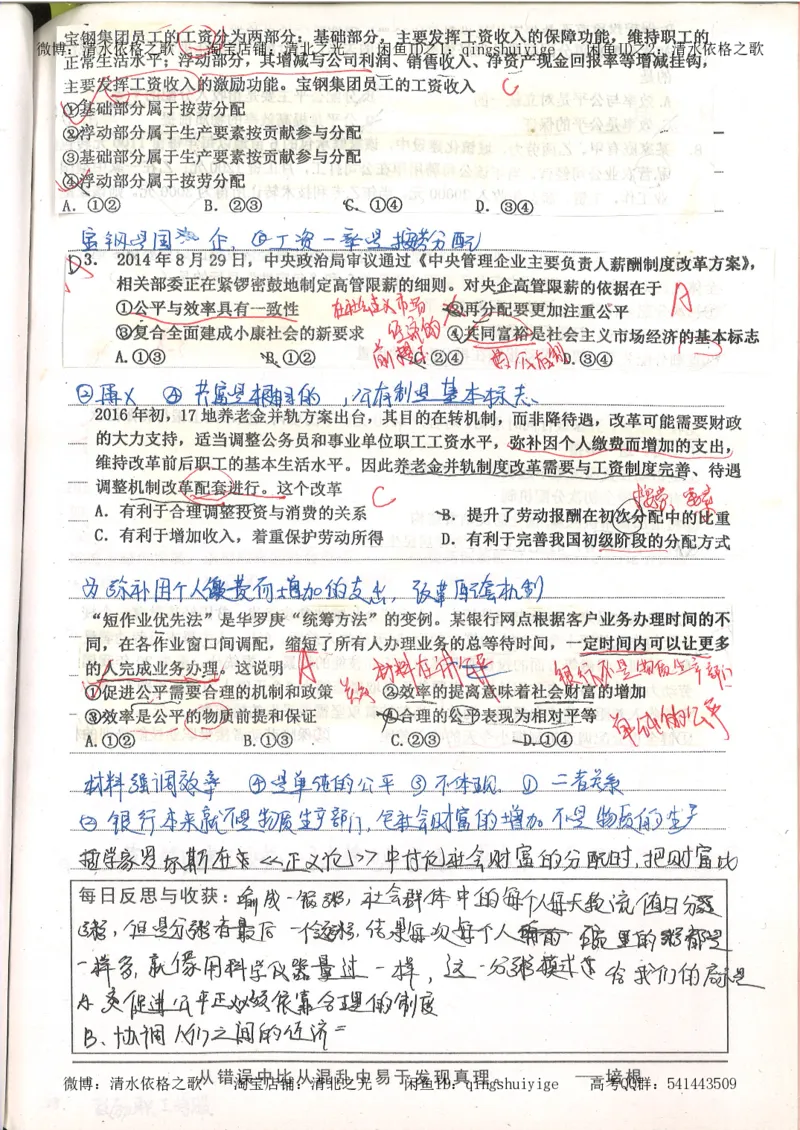 宝钢集团员工的工资分为两部分：基础部分，主要发挥工资收入的保障功能，维持职工的
微博：清水依格之歌 淘宝店铺：清北之光 闲鱼ID之1：qingshuiyige 闲鱼ID之2：清水依格之歌
正常生活水平；浮动部分，其增减与公司利润、销售收入、净资产现金回报率等增减挂钩，
主要发挥工资收入的激励功能。宝钢集团员工的工资收入 C
①基础部分属于按劳分配
②浮动部分属于生产要素按贡献参与分配
③基础部分属于生产要素按贡献参与分配
④浮动部分属于按劳分配
A. ①② B. ②③ C. ①④ D. ③④
宝钢是国企，工资一率是按劳分配
3. 2014年8月29日，中央政治局审议通过《中央管理企业主要负责人薪酬制度改革方案》，
相关部委正在紧锣密鼓地制定高管限薪的细则。对央企高管限薪的依据在于 A
①公平与效率具有一致性 在社会主义市场 ②再分配要更加注重公平
③复合全面建成小康社会的新要求 经济的 ④共同富裕是社会主义市场经济的基本标志
A. ①③ B. ①② C. ②④ D. ③④
④共富是根本目的，公有制是基本标志
2016年初，17地养老金并轨方案出台，其目的在转机制，而非降待遇，改革可能需要财政
的大力支持，适当调整公务员和事业单位职工工资水平，弥补因个人缴费而增加的支出，
维持改革前后职工的基本生活水平。因此养老金并轨制度改革需要与工资制度完善、待遇
调整机制改革配套进行。这个改革 C
按劳，要素
A. 有利于合理调整投资与消费的关系 B. 提升了劳动报酬在初次分配中的比重
C. 有利于增加收入，着重保护劳动所得 D. 有利于完善我国初级阶段的分配方式
为弥补因个人缴费而增加的支出，改革配套机制
“短作业优先法”是华罗庚“统筹方法”的变例。某银行网点根据客户业务办理时间的不
同，在各作业窗口间调配，缩短了所有人办理业务的总等待时间，一定时间内可以让更多
的人完成业务办理。这说明 A 材料在讲 银行不是物质生产部门
①促进公平需要合理的机制和政策 ②效率的提高意味着社会财富的增加
③效率是公平的物质前提和保证 ④合理的公平表现为相对平等
单纯的公平
A. ①② B. ①③ C. ②③ D. ①④
材料强调效率 ④是单纯的公平 ③不体现 ① 二者关系
② 银行本来就不是物质生产部门，包社会财富的增加不是物质的生产
哲学家罗尔斯在《正义论》中讨论社会财富的分配时，把财富比
每日反思与收获：喻成一锅粥，社会群体中的每个人每天数流值日分
粥，但是分粥者最后一个 结果每次每个人 碗里的粥都是
一样多，就像用科学仪器量过一样，这一分粥模式 给我们的启示是
A 促进公平正义须依靠合理的制度
B、协调人们之间的经济
从错误中比从混乱中易于发现真理 ——培根
微博：清水依格之歌 淘宝店铺：清北之光 闲鱼ID：qingshuiyige 高考QQ群：541443509